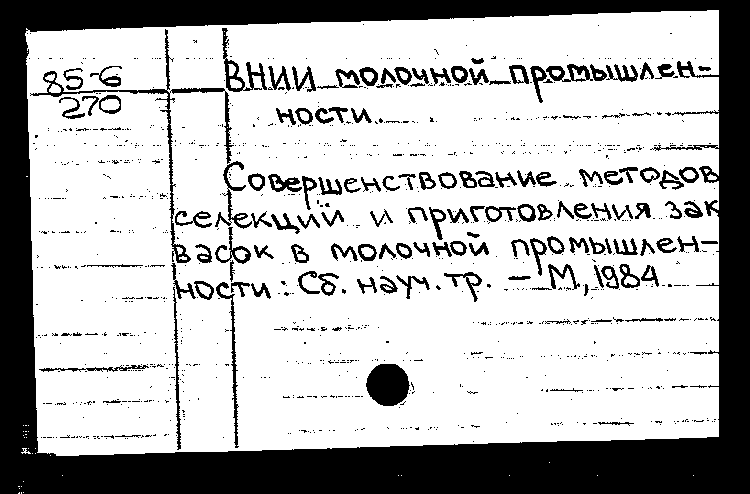 85-6
270
ВНИИ молочной промышлен-
ности.
Совершенствование методов
селекций и приготовления зак
васок в молочной промышлен-
ности: Сб. науч. тр. – М, 1984.